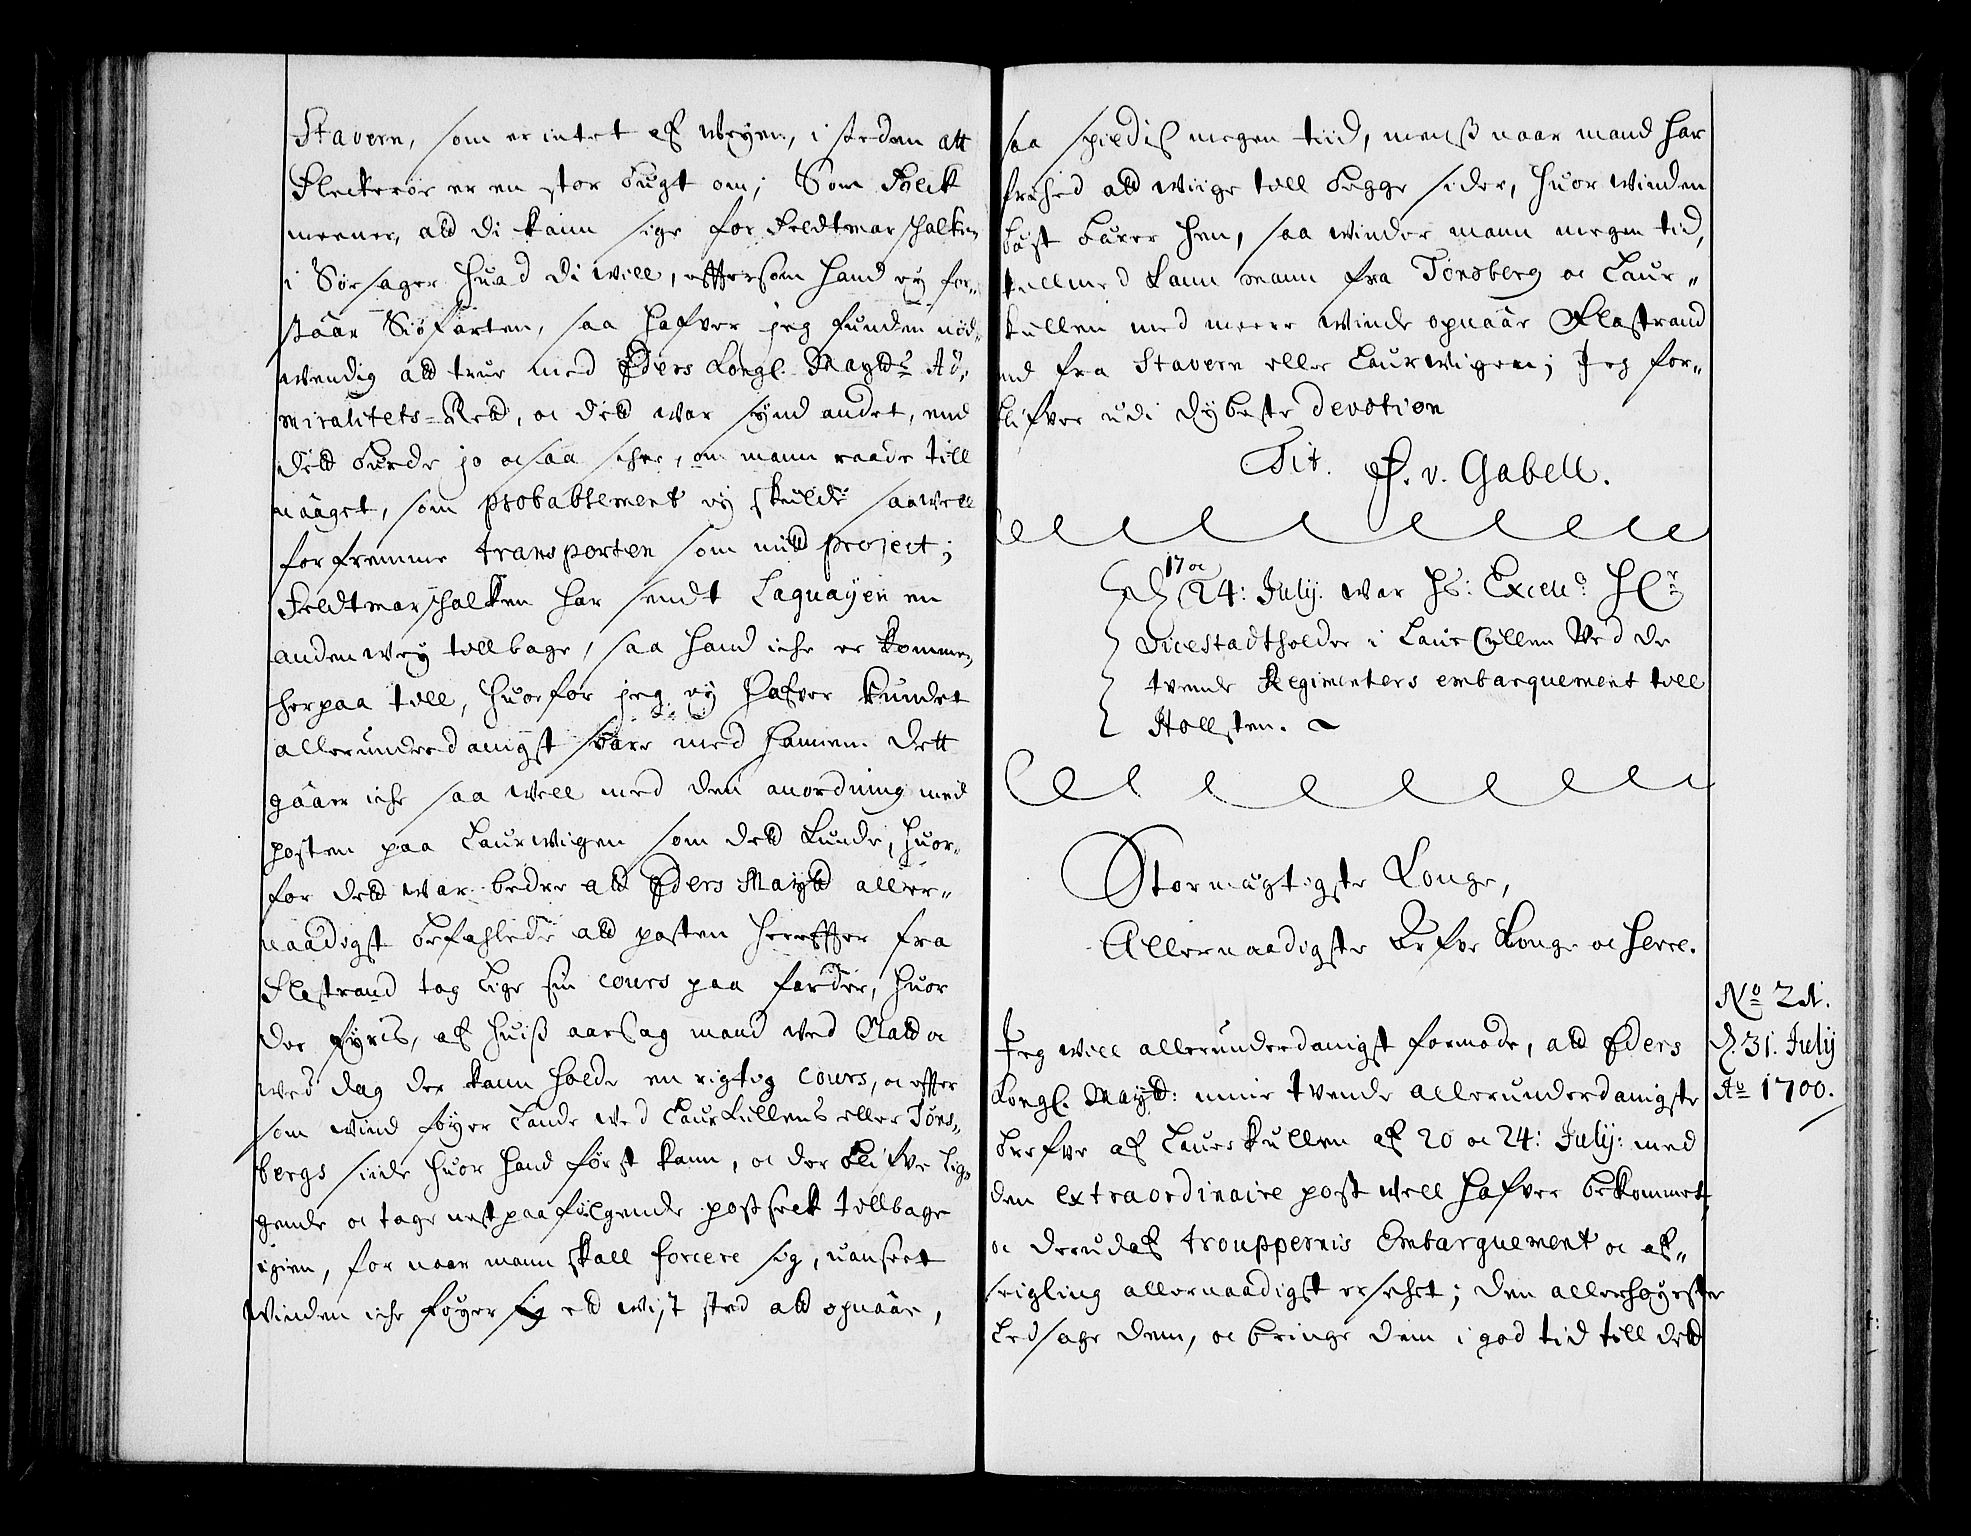 Stavern, som er intet af Weyen, i steden att
Fleckerøe er en stor bugt om; Som Folck
meener, att di kann sige for Feldtmarschalken
i Søe sager huad di will, effttersom hand ey for-
staar Siøfarten, saa hafver jeg funden nød-
wendig att true med Eders Kongl. Maytts Ad-
miralitets-Rett, oc dett war synd andet, end
dett burde jo ocsaa schee, om mann raade till
naaget, som probablement ey skulde saawell
forfremme transporten som mitt project;
Feldtmarschalken har sendt Laquayen en
anden wey tillbage, saa hand iche er kommen
herpaa till, huorfor jeg ey hafver kundet
allerunderdanigst svare med hannem. Dett
gaaer iche saa well med den anordning med
posten paa Laurwigen som dett kunde, huor-
for dett war bedre att Eders Maytt aller-
naadigst befahlede att posten hereffter fra
Flastrand tog lige sin cours paa Færder, huor
der fyres, af huiß aarsag mand ved Natt oc
wed dag der kann holde en rigtig cours, oc effter
som wind føyer lande ved Laurkullens eller Tøns-
bergs siide huor hand først kann, oc der blifve lig-
gende oc tage nest paafølgende post sæk tillbage
igien, for naar mann skall forcere sig, uanseet
Winden iche føyer sig ett wist sted att opnaae,
saa spildis megen tiid, menß naar mand har
frihed att wiige till begge sider, huor winden
best bærer hen, saa winder mann megen tid,
tillmed kann mann fra Tønsberg oc Laur-
kullen med meere winde opnaae Flastrand
end fra Stavern eller Laurwigen; Jeg for-
blifver udi dybeste devotion
Tit. F. v. Gabell.
d. 17 oc 24: July. war Hs: Excell: Hr
Vicestadtholder i Laurkullen Ved de
tvende Regimenters embarquement till
Hollsten.
Stormægtigste Konge,
Allernaadigste Arfve Konge oc Herre.
No 21.
d. 31. July
Ao 1700.
Jeg will allerunderdanigst formode, att Eders
Kongl. Maytt: mine tvende allerunderdanigste
brefve af Laurkullen af 20 oc 24: July: med
den extraordinaire post well hafver bekommet,
oc derudaf trouppernis Embarquement oc af-
seigling allernaadigst erseehet; den allerhøyeste
ledsage dem, oc bringe dem i god tid till dett